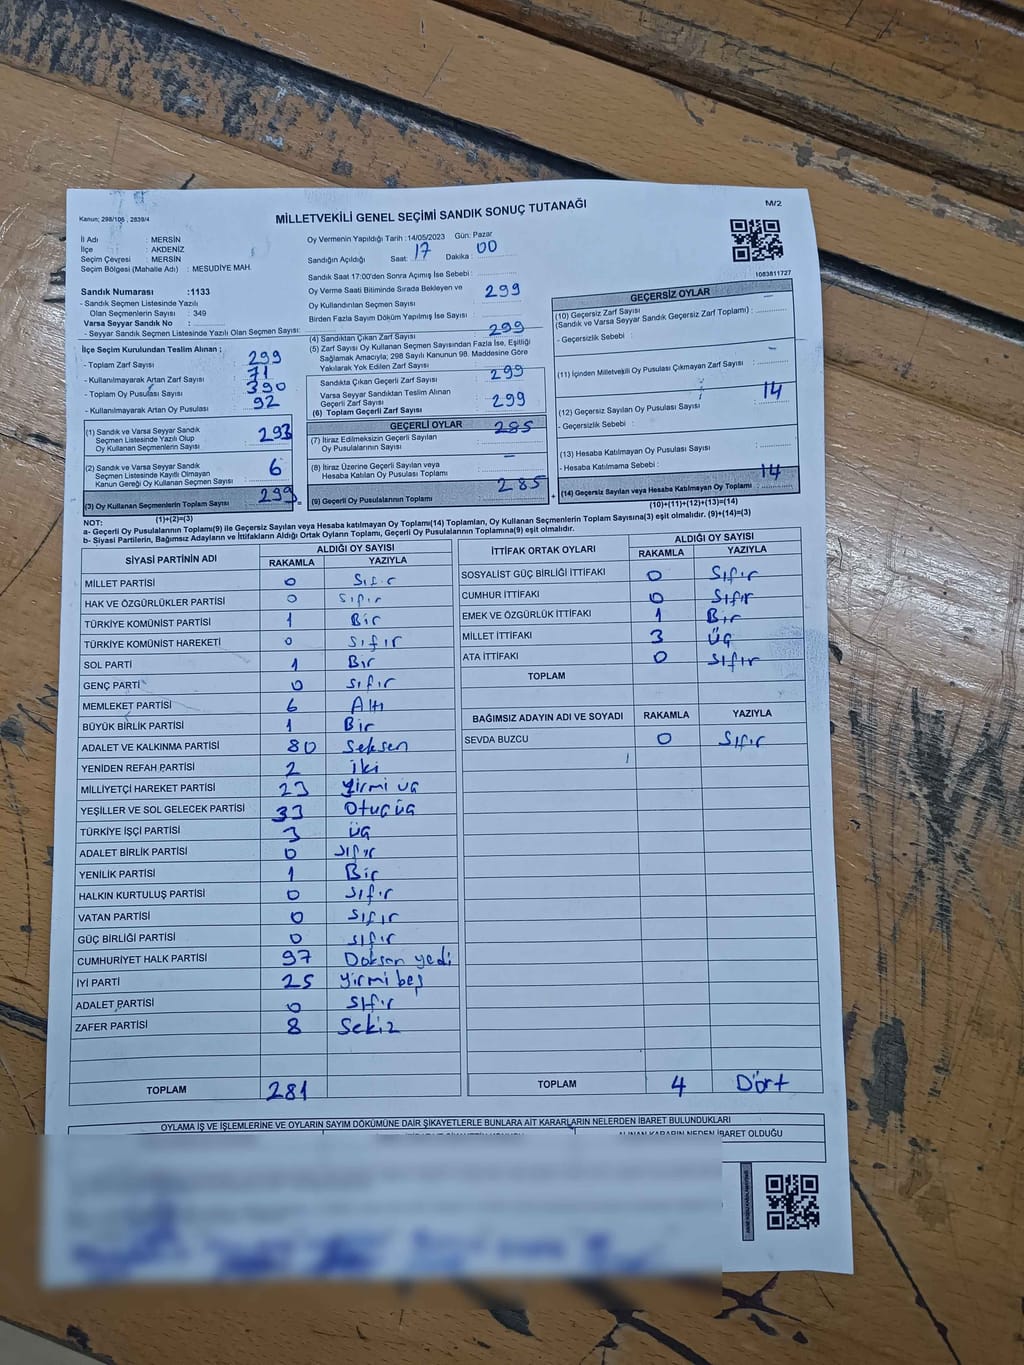 Kanun; 298/105 , 2839/4
MİLLETVEKİLİ GENEL SEÇİMİ SANDIK SONUÇ TUTANAĞI
M/2
İl Adı : MERSİN
İlçe : AKDENİZ
Seçim Çevresi : MERSİN
Seçim Bölgesi (Mahalle Adı) : MESUDİYE MAH.
Sandık Numarası :1133
- Sandık Seçmen Listesinde Yazılı
Olan Seçmenlerin Sayısı : 349
Varsa Seyyar Sandık No :
- Seyyar Sandık Seçmen Listesinde Yazılı Olan Seçmen Sayısı:
Oy Vermenin Yapıldığı Tarih :14/05/2023 Gün: Pazar
Sandığın Açıldığı Saat: 17 Dakika : 00
Sandık Saat 17:00'den Sonra Açımış İse Sebebi :
Oy Verme Saati Bitiminde Sırada Bekleyen ve
Oy Kullandırılan Seçmen Sayısı : 299
Birden Fazla Sayım Döküm Yapılmış İse Sayısı :
1083811727
İlçe Seçim Kurulundan Teslim Alınan ;
- Toplam Zarf Sayısı : 299
- Kullanılmayarak Artan Zarf Sayısı : 71
- Toplam Oy Pusulası Sayısı : 390
- Kullanılmayarak Artan Oy Pusulası : 92
(1) Sandık ve Varsa Seyyar Sandık
Seçmen Listesinde Yazılı Olup
Oy Kullanan Seçmenlerin Sayısı : 293
(2) Sandık ve Varsa Seyyar Sandık
Seçmen Listesinde Kayıtlı Olmayan
Kanun Gereği Oy Kullanan Seçmen Sayısı : 6
(3) Oy Kullanan Seçmenlerin Toplam Sayısı : 299
(1)+(2)=(3)
(4) Sandıktan Çıkan Zarf Sayısı : 299
(5) Zarf Sayısı Oy Kullanan Seçmen Sayısından Fazla İse, Eşitliği
Sağlamak Amacıyla; 298 Sayılı Kanunun 98. Maddesine Göre
Yakılarak Yok Edilen Zarf Sayısı :
Sandıkta Çıkan Geçerli Zarf Sayısı : 299
Varsa Seyyar Sandıktan Teslim Alınan
Geçerli Zarf Sayısı
(6) Toplam Geçerli Zarf Sayısı : 299
GEÇERLİ OYLAR
(7) İtiraz Edilmeksizin Geçerli Sayılan
Oy Pusulalarının Sayısı : 285
(8) İtiraz Üzerine Geçerli Sayılan veya
Hesaba Katılan Oy Pusulası Toplamı : -
(9) Geçerli Oy Pusulalarının Toplamı : 285
GEÇERSİZ OYLAR
(10) Geçersiz Zarf Sayısı
(Sandık ve Varsa Seyyar Sandık Geçersiz Zarf Toplamı) : -
- Geçersizlik Sebebi :
(11) İçinden Milletvekili Oy Pusulası Çıkmayan Zarf Sayısı : -
(12) Geçersiz Sayılan Oy Pusulası Sayısı : 14
- Geçersizlik Sebebi :
(13) Hesaba Katılmayan Oy Pusulası Sayısı :
- Hesaba Katılmama Sebebi :
(14) Geçersiz Sayılan veya Hesaba Katılmayan Oy Toplamı : 14
(10)+(11)+(12)+(13)=(14)
NOT:
a- Geçerli Oy Pusulaları Toplamı(9) ile Geçersiz Sayılan veya Hesaba katılmayan Oy Toplamı(14) Toplamları, Oy Kullanan Seçmenlerin Toplam Sayısına(3) eşit olmalıdır. (9)+(14)=(3)
b- Siyasi Partilerin, Bağımsız Adayların ve İttifakların Aldığı Ortak Oyların Toplamı, Geçerli Oy Pusulalarının Toplamına(9) eşit olmalıdır.
SİYASİ PARTİNİN ADI ALDIĞI OY SAYISI
RAKAMLA YAZIYLA
MİLLET PARTİSİ 0 Sıfır
HAK VE ÖZGÜRLÜKLER PARTİSİ 0 sıfır
TÜRKİYE KOMÜNİST PARTİSİ 1 Bir
TÜRKİYE KOMÜNİST HAREKETİ 0 sıfır
SOL PARTİ 1 Bir
GENÇ PARTİ 0 sıfır
MEMLEKET PARTİSİ 6 Altı
BÜYÜK BİRLİK PARTİSİ 1 Bir
ADALET VE KALKINMA PARTİSİ 80 Seksen
YENİDEN REFAH PARTİSİ 2 iki
MİLLİYETÇİ HAREKET PARTİSİ 23 Yirmi üç
YEŞİLLER VE SOL GELECEK PARTİSİ 33 Otuz üç
TÜRKİYE İŞÇİ PARTİSİ 3 üç
ADALET BİRLİK PARTİSİ 0 sıfır
YENİLİK PARTİSİ 1 Bir
HALKIN KURTULUŞ PARTİSİ 0 sıfır
VATAN PARTİSİ 0 sıfır
GÜÇ BİRLİĞİ PARTİSİ 0 sıfır
CUMHURİYET HALK PARTİSİ 97 Doksan yedi
İYİ PARTİ 25 Yirmi beş
ADALET PARTİSİ 0 sıfır
ZAFER PARTİSİ 8 Sekiz
TOPLAM 281
İTTİFAK ORTAK OYLARI ALDIĞI OY SAYISI
RAKAMLA YAZIYLA
SOSYALİST GÜÇ BİRLİĞİ İTTİFAKI 0 Sıfır
CUMHUR İTTİFAKI 0 Sıfır
EMEK VE ÖZGÜRLÜK İTTİFAKI 1 Bir
MİLLET İTTİFAKI 3 üç
ATA İTTİFAKI 0 sıfır
TOPLAM
BAĞIMSIZ ADAYIN ADI VE SOYADI RAKAMLA YAZIYLA
SEVDA BUZCU 0 Sıfır
TOPLAM 4 Dört
OYLAMA İŞ VE İŞLEMLERİNE VE OYLARIN SAYIM DÖKÜMÜNE DAİR ŞİKAYETLERLE BUNLARA AİT KARARLARIN NELERDEN İBARET BULUNDUKLARI
ALINAN KARARIN NEDEN İBARET OLDUĞU